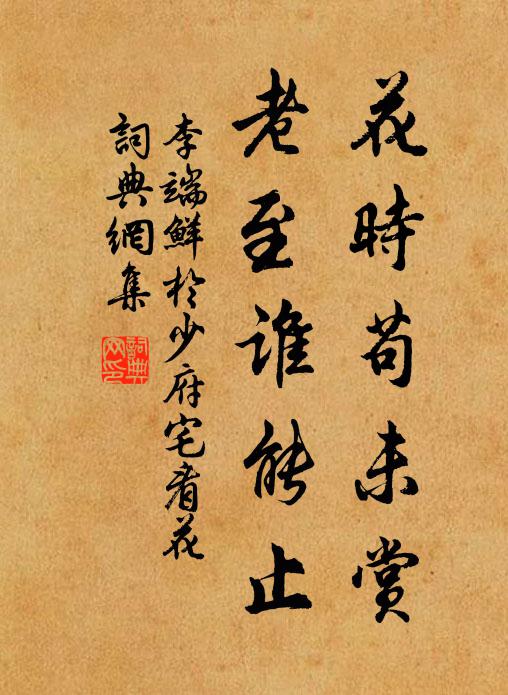 花時苟未賞
老至誰能止
李端鮮於少府宅看花
詞典網集
詞典网印